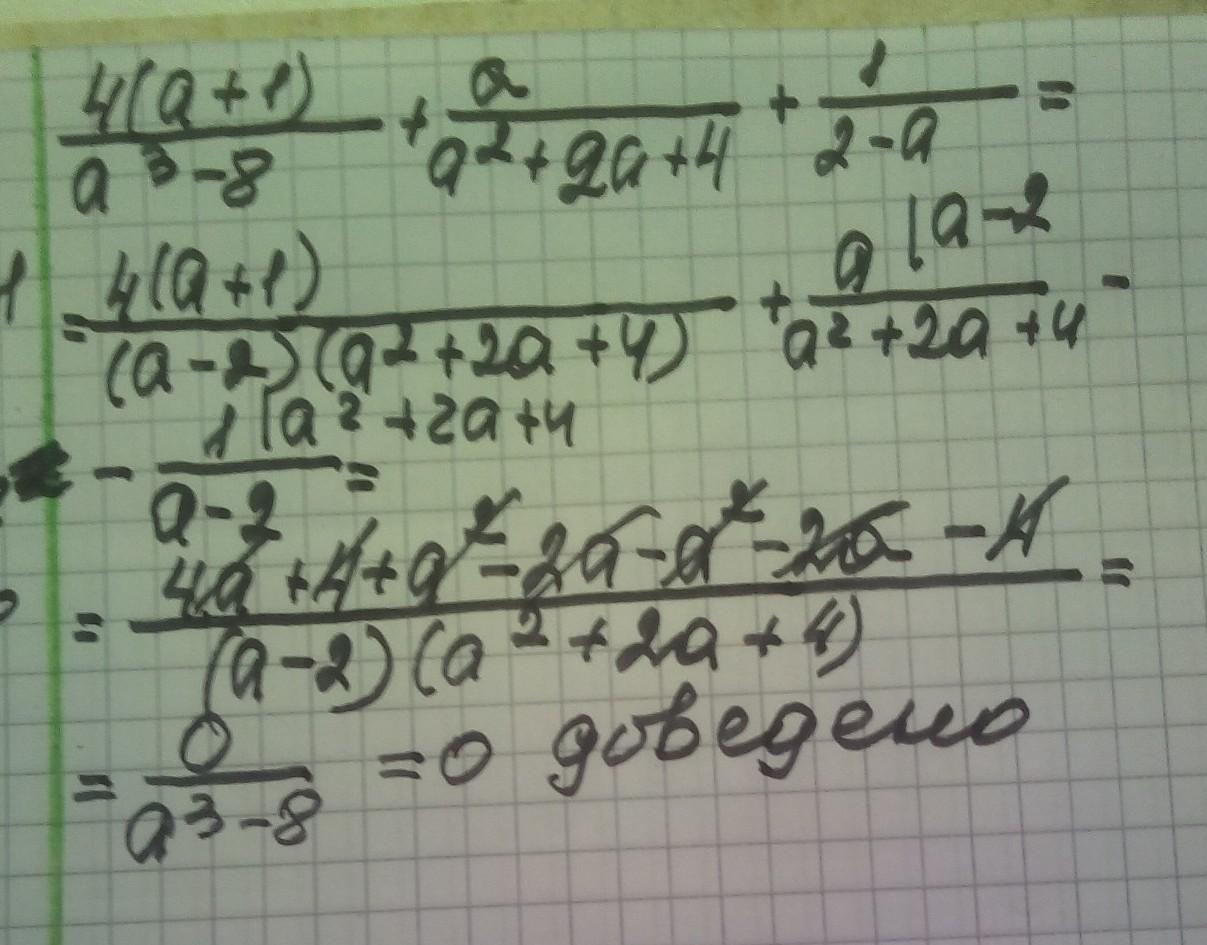 4(a+1)/(a³-8) + a/(a²+2a+4) + 1/(2-a) =
= 4(a+1)/((a-2)(a²+2a+4)) + a |a-2/(a²+2a+4) -
- 1 |a²+2a+4/(a-2) =
= (4a+4+a²-2a-a²-2a-4)/((a-2)(a²+2a+4)) =
= 0/(a³-8) = 0 доведено